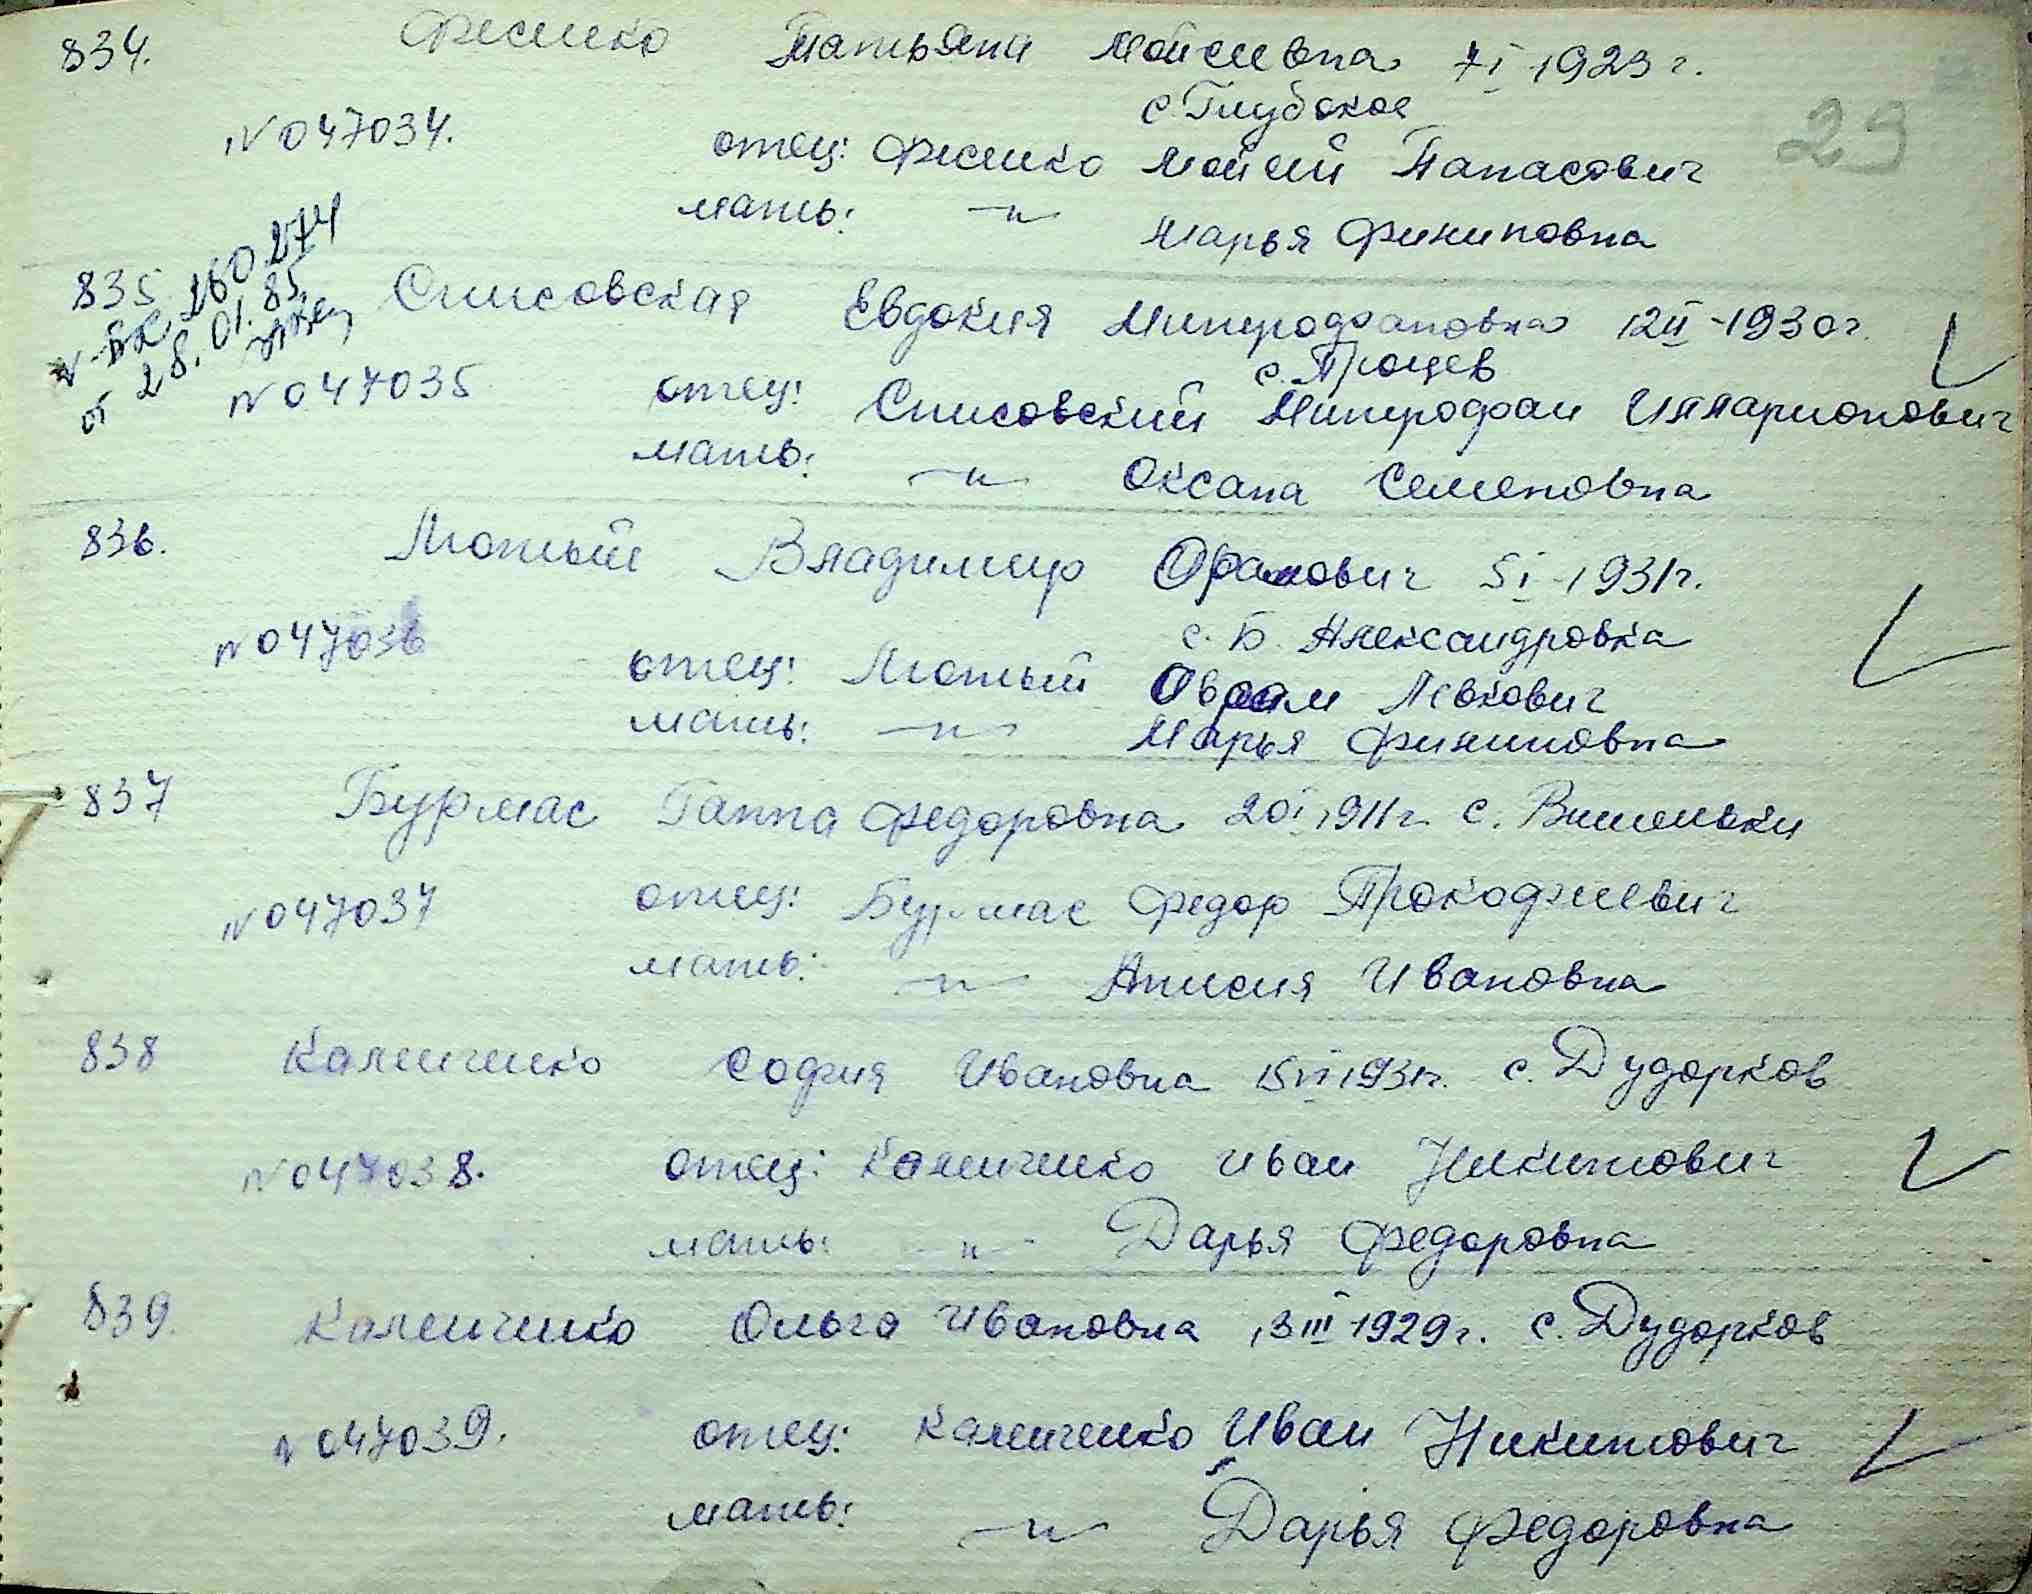 834. Фесенко Татьяна Мойсеевна 7 I 1923 г.
с. Глубокое
29
N 047034. отец: Фесенко Мойсей Панасович
мать: —"— Марья Филиповна
835 Списовская Евдокия Митрофановна 12 II - 1930 г.
260274
от 28.01.85
с. Процев
N 047035 отец: Списовский Митрофан Илларионович
мать: —"— Оксана Семеновна
836. Лютый Владимир Орамович 5 I - 1931 г.
с. Б. Александровка
N 047036 отец: Лютый Оврам Левкович
мать: —"— Марья Филиповна
837 Бурмас Ганна Федоровна 20 I 1911 г. с. Вишеньки
N 047037 отец: Бурмас Федор Прокофиевич
мать: —"— Анисия Ивановна
838 Каленченко София Ивановна 15 VI 1931 г. с. Дударков
N 047038. отец: Каленченко Иван Никитович
мать: —"— Дарья Федоровна
839. Каленченко Ольга Ивановна 13 III 1929 г. с. Дударков
N 047039. отец: Каленченко Иван Никитович
мать: —"— Дарья Федоровна